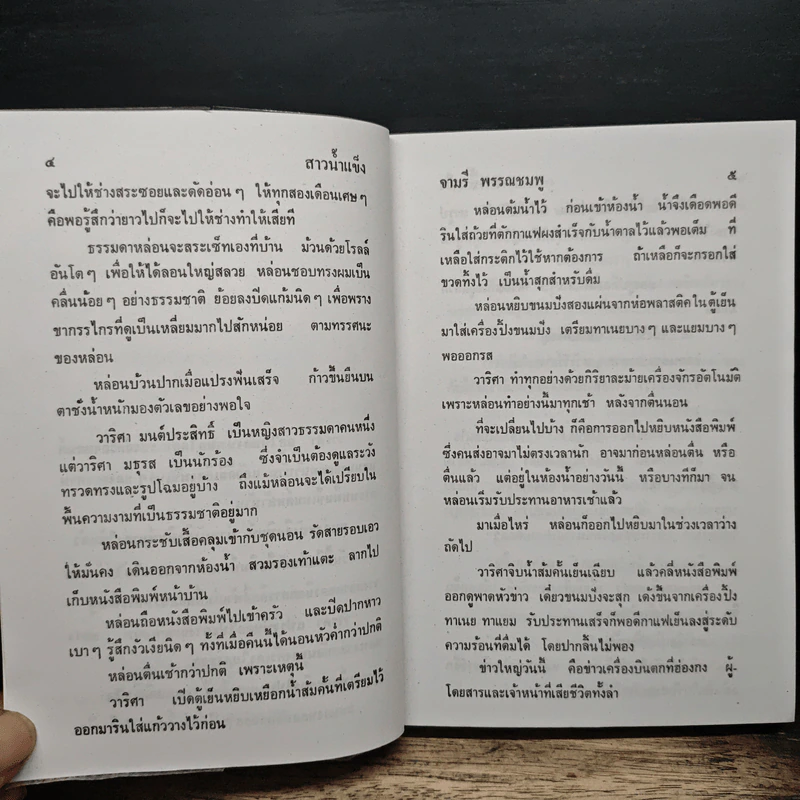 ๔ สาวน้ำแข็ง
จะไปให้ช่างสระซอยและดัดอ่อนๆ ให้ทุกสองเดือนเศษๆ
คือพอรู้สึกว่ายาวไปก็จะไปให้ช่างทำให้เสียที
ธรรมดาหล่อนจะสระเซ็ทเองที่บ้าน ม้วนด้วยโรลล์
อันโตๆ เพื่อให้ได้ลอนใหญ่สลวย หล่อนชอบทรงผมเป็น
คลื่นน้อยๆ อย่างธรรมชาติ ย้อยลงปิดแก้มนิดๆ เพื่อพราง
ขากรรไกรที่ดูเป็นเหลี่ยมมากไปสักหน่อย ตามทรรศนะ
ของหล่อน
หล่อนบ้วนปากเมื่อแปรงฟันเสร็จ ก้าวขึ้นยืนบน
ตาชั่งน้ำหนักมองตัวเลขอย่างพอใจ
วาริศา มนต์ประสิทธิ์ เป็นหญิงสาวธรรมดาคนหนึ่ง
แต่วาริศา มธุรส เป็นนักร้อง ซึ่งจำเป็นต้องดูแลระวัง
ทรวดทรงและรูปโฉมอยู่บ้าง ถึงแม้หล่อนจะได้เปรียบใน
พื้นความงามที่เป็นธรรมชาติอยู่มาก
หล่อนกระชับเสื้อคลุมเข้ากับชุดนอน รัดสายรอบเอว
ให้มั่นคง เดินออกจากห้องน้ำ สวมรองเท้าแตะ ลากไป
เก็บหนังสือพิมพ์หน้าบ้าน
หล่อนถือหนังสือพิมพ์ไปเข้าครัว และปิดปากหาว
เบาๆ รู้สึกวังเวียงนิดๆ ทั้งที่เมื่อคืนนี้ได้นอนหัวค่ำกว่าปกติ
หล่อนตื่นเช้ากว่าปกติ เพราะเหตุนี้
วาริศา เปิดตู้เย็นหยิบเหยือกน้ำส้มคั้นที่เตรียมไว้
ออกมารินใส่แก้ววางไว้ก่อน
จามรี พรรณชมพู ๕
หล่อนต้มน้ำไว้ ก่อนเข้าห้องน้ำ น้ำจึงเดือดพอดี
รินใส่ถ้วยที่ตักกาแฟผงสำเร็จกับน้ำตาลไว้แล้วพอเต็ม ที่
เหลือใส่กระติกไว้ใช้หากต้องการ ถ้าเหลือก็จะกรอกใส่
ขวดทิ้งไว้ เป็นน้ำสุกสำหรับดื่ม
หล่อนหยิบขนมปังสองแผ่นจากห่อพลาสติคในตู้เย็น
มาใส่เครื่องปิ้งขนมปัง เตรียมทาเนยบางๆ และแยมบางๆ
พอออกรส
วาริศา ทำทุกอย่างด้วยกิริยาละม้ายเครื่องจักรอัตโนมัติ
เพราะหล่อนทำอย่างนี้มาทุกเช้า หลังจากตื่นนอน
ที่จะเปลี่ยนไปบ้าง ก็คือการออกไปหยิบหนังสือพิมพ์
ซึ่งคนส่งอาจมาไม่ตรงเวลานัก อาจมาก่อนหล่อนตื่น หรือ
ตื่นแล้ว แต่อยู่ในห้องน้ำอย่างวันนี้ หรือบางทีก็มา จน
หล่อนเริ่มรับประทานอาหารเช้าแล้ว
มาเมื่อไหร่ หล่อนก็ออกไปหยิบมาในช่วงเวลาว่าง
ถัดไป
วาริศาจิบน้ำส้มคั้นเย็นเฉียบ แล้วคลี่หนังสือพิมพ์
ออกดูพาดหัวข่าว เดี๋ยวขนมปังจะสุก เด้งขึ้นจากเครื่องปิ้ง
ทาเนย ทาแยม รับประทานเสร็จก็พอดีกาแฟเย็นลงสู่ระดับ
ความร้อนที่ดื่มได้ โดยปากลิ้นไม่พอง
ข่าวใหญ่วันนี้ คือข่าวเครื่องบินตกที่ฮ่องกง ผู้-
โดยสารและเจ้าหน้าที่เสียชีวิตทั้งลำ